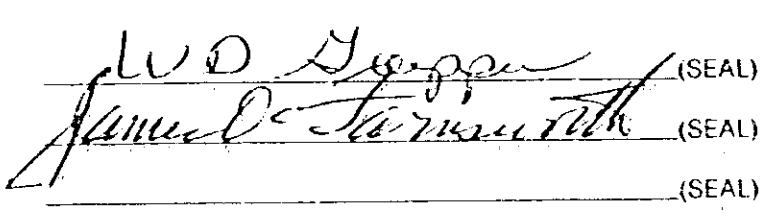 W D (SEAL)
James D Farnsworth (SEAL)
(SEAL)